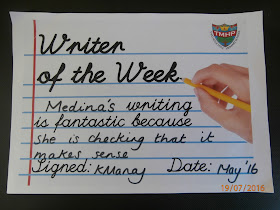 TMHP
Writer
of the Week
Medina's writing
is fantastic because
she is checking that it
makes sense
Signed: KManaj Date: May '16
19/07/2016